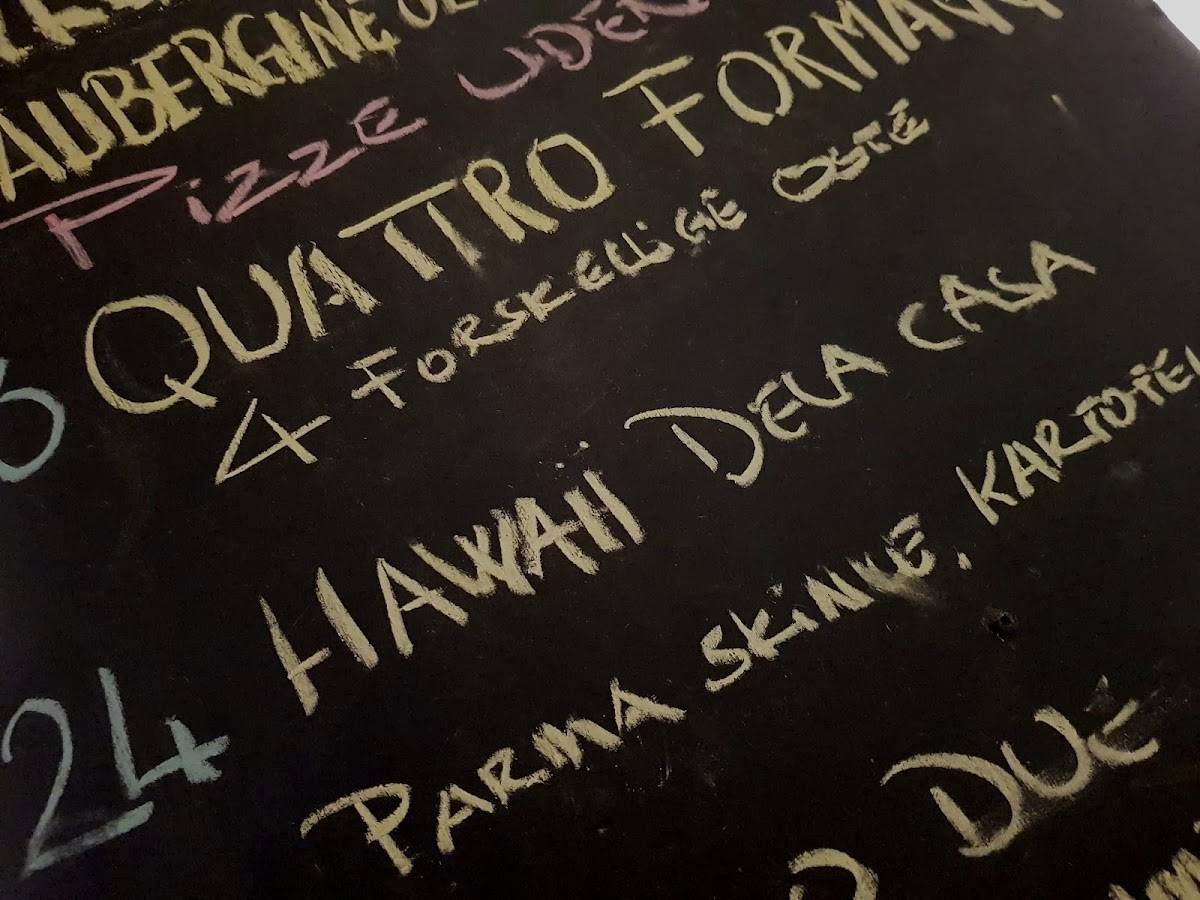 AUBERGINE
PIZZE UDEN
QUATTRO FORMAG
4 FORSKELLIGE OSTE
HAWAII DELA CASA
24 PARMA SKINKE, KARTOFEL
DUE